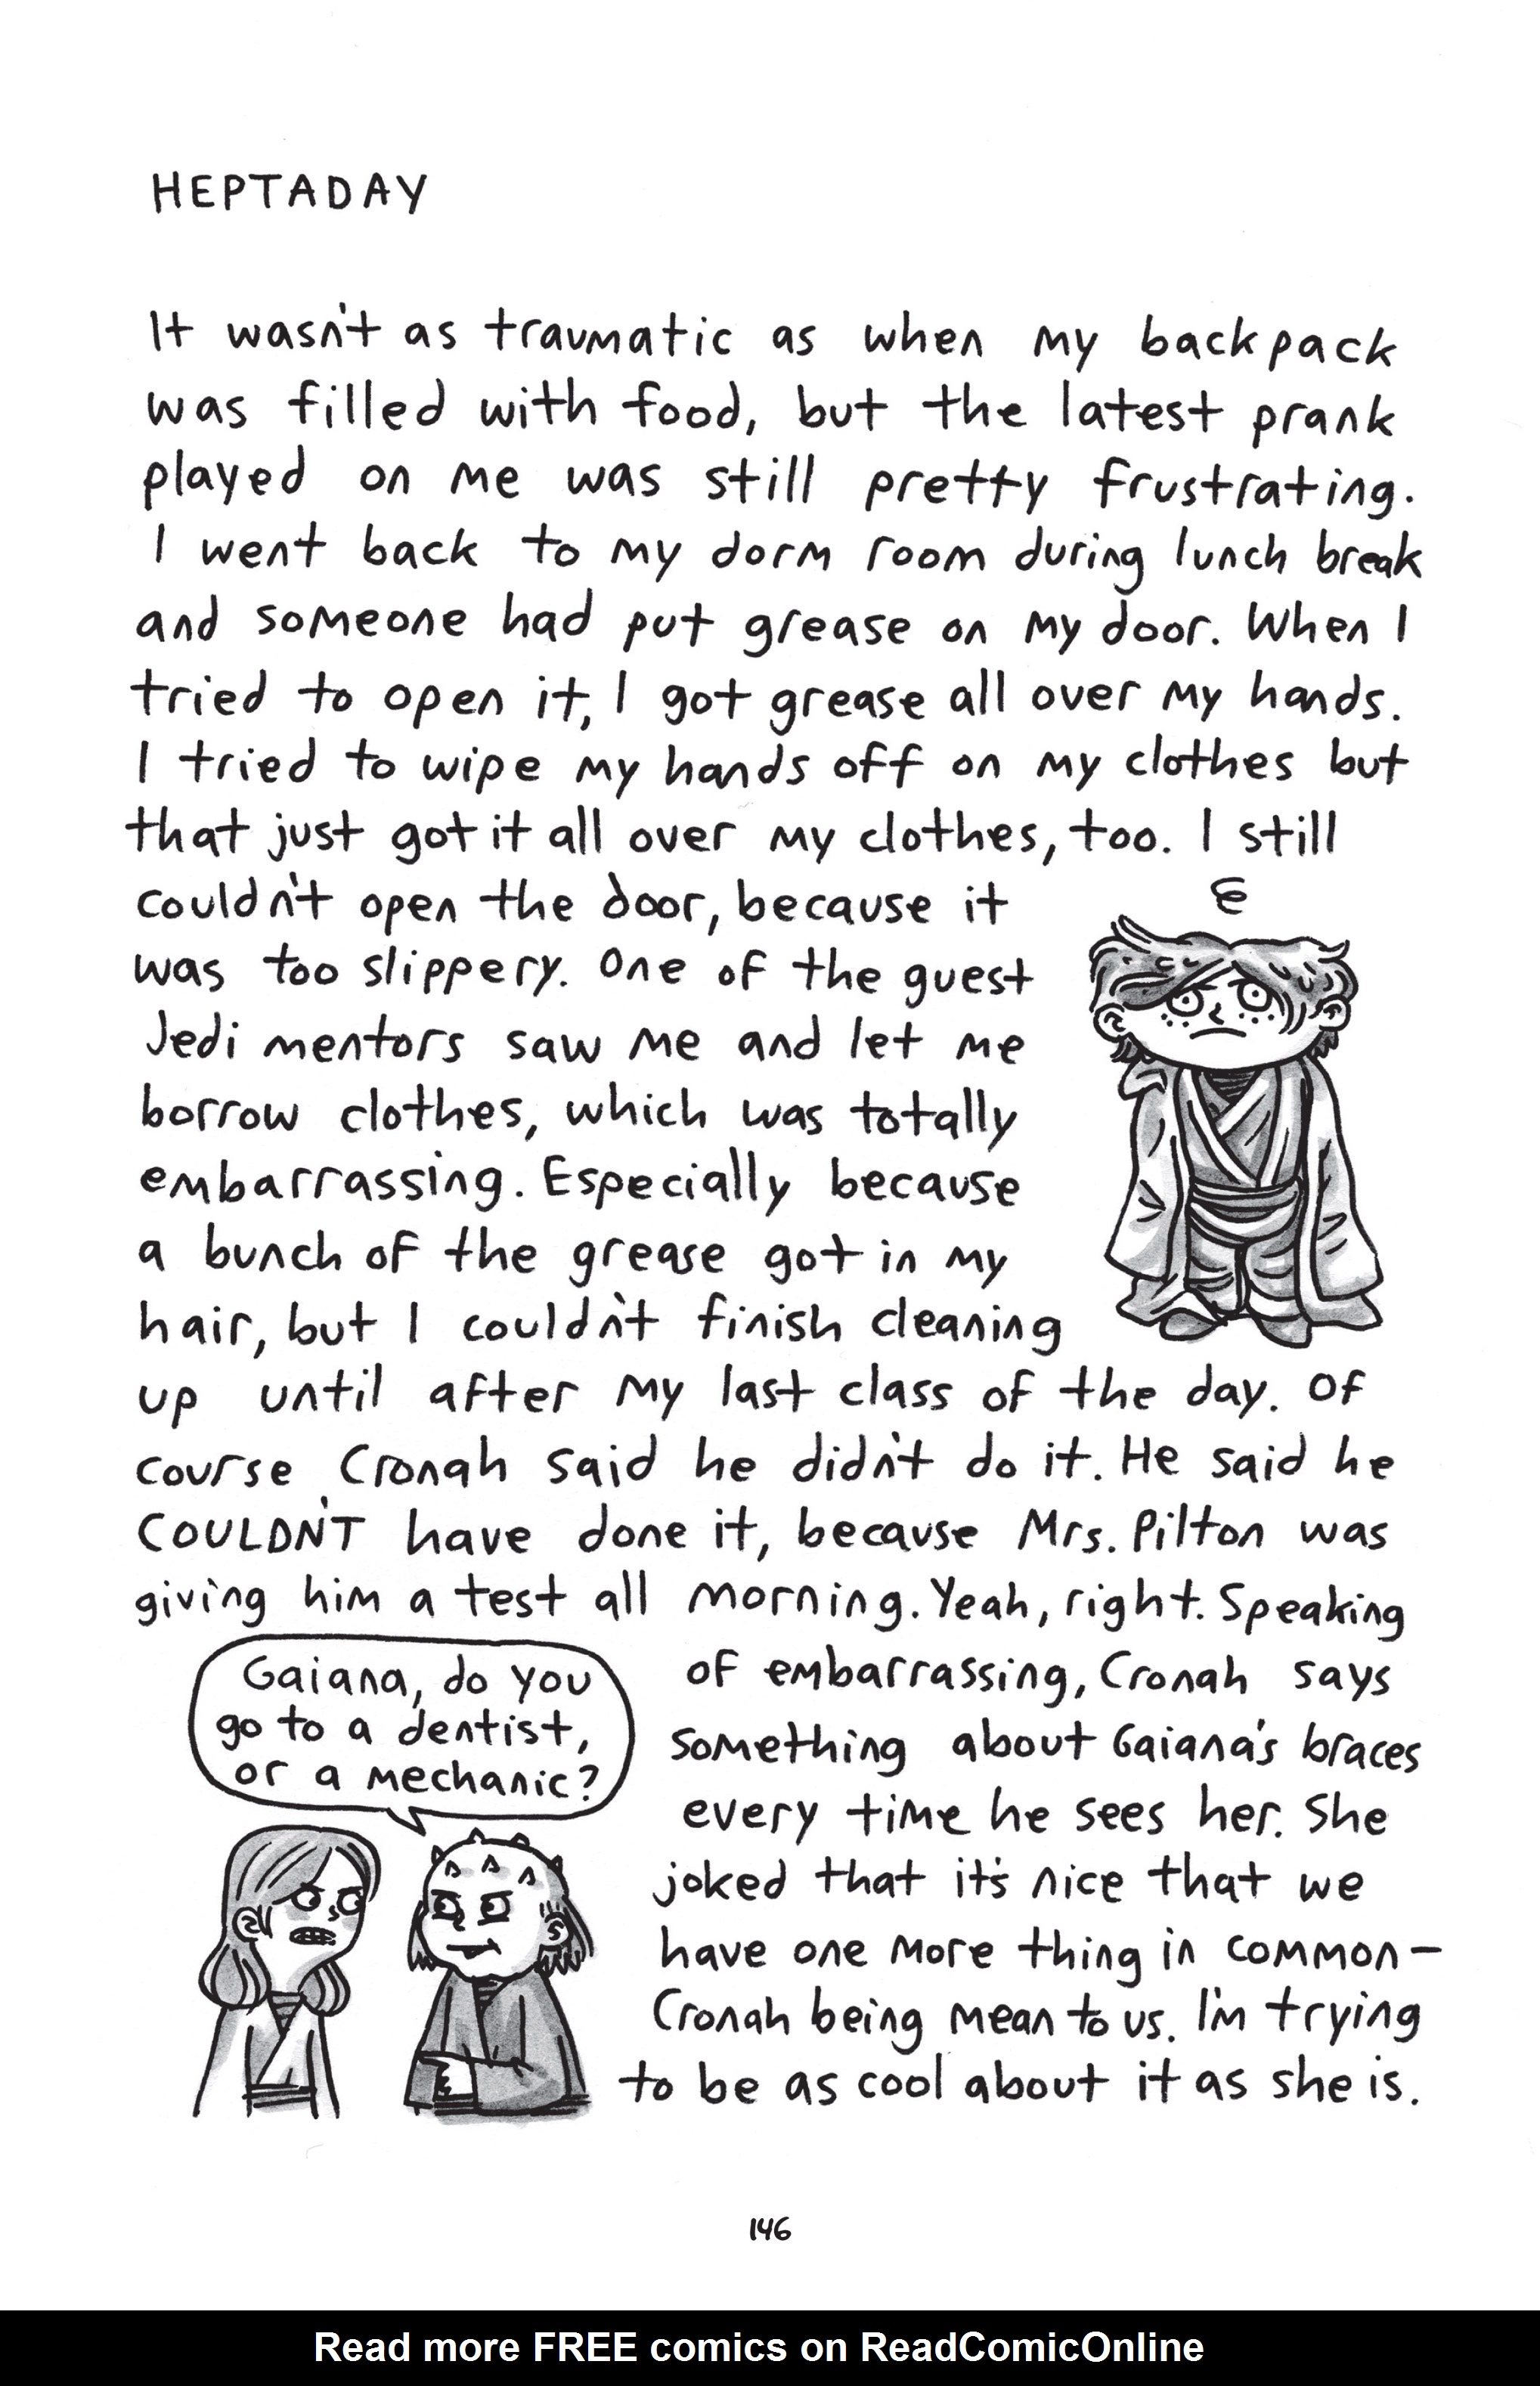 HEPTADAY
It wasn't as traumatic as when my backpack
was filled with food, but the latest prank
played on me was still pretty frustrating.
I went back to my dorm room during lunch break
and someone had put grease on my door. When I
tried to open it, I got grease all over my hands.
I tried to wipe my hands off on my clothes but
that just got it all over my clothes, too. I still
couldn't open the door, because it
was too slippery. One of the guest
Jedi mentors saw me and let me
borrow clothes, which was totally
embarrassing. Especially because
a bunch of the grease got in my
hair, but I couldn't finish cleaning
up until after my last class of the day. Of
course, Cronah said he didn't do it. He said he
COULDN'T have done it, because Mrs. Pilton was
giving him a test all morning. Yeah, right. Speaking
of embarrassing, Cronah says
something about Gaiana's braces
every time he sees her. She
joked that it's nice that we
have one more thing in common—
Cronah being mean to us. I'm trying
to be as cool about it as she is.
Gaiana, do you
go to a dentist,
or a mechanic?
146
Read more FREE comics on ReadComicOnline